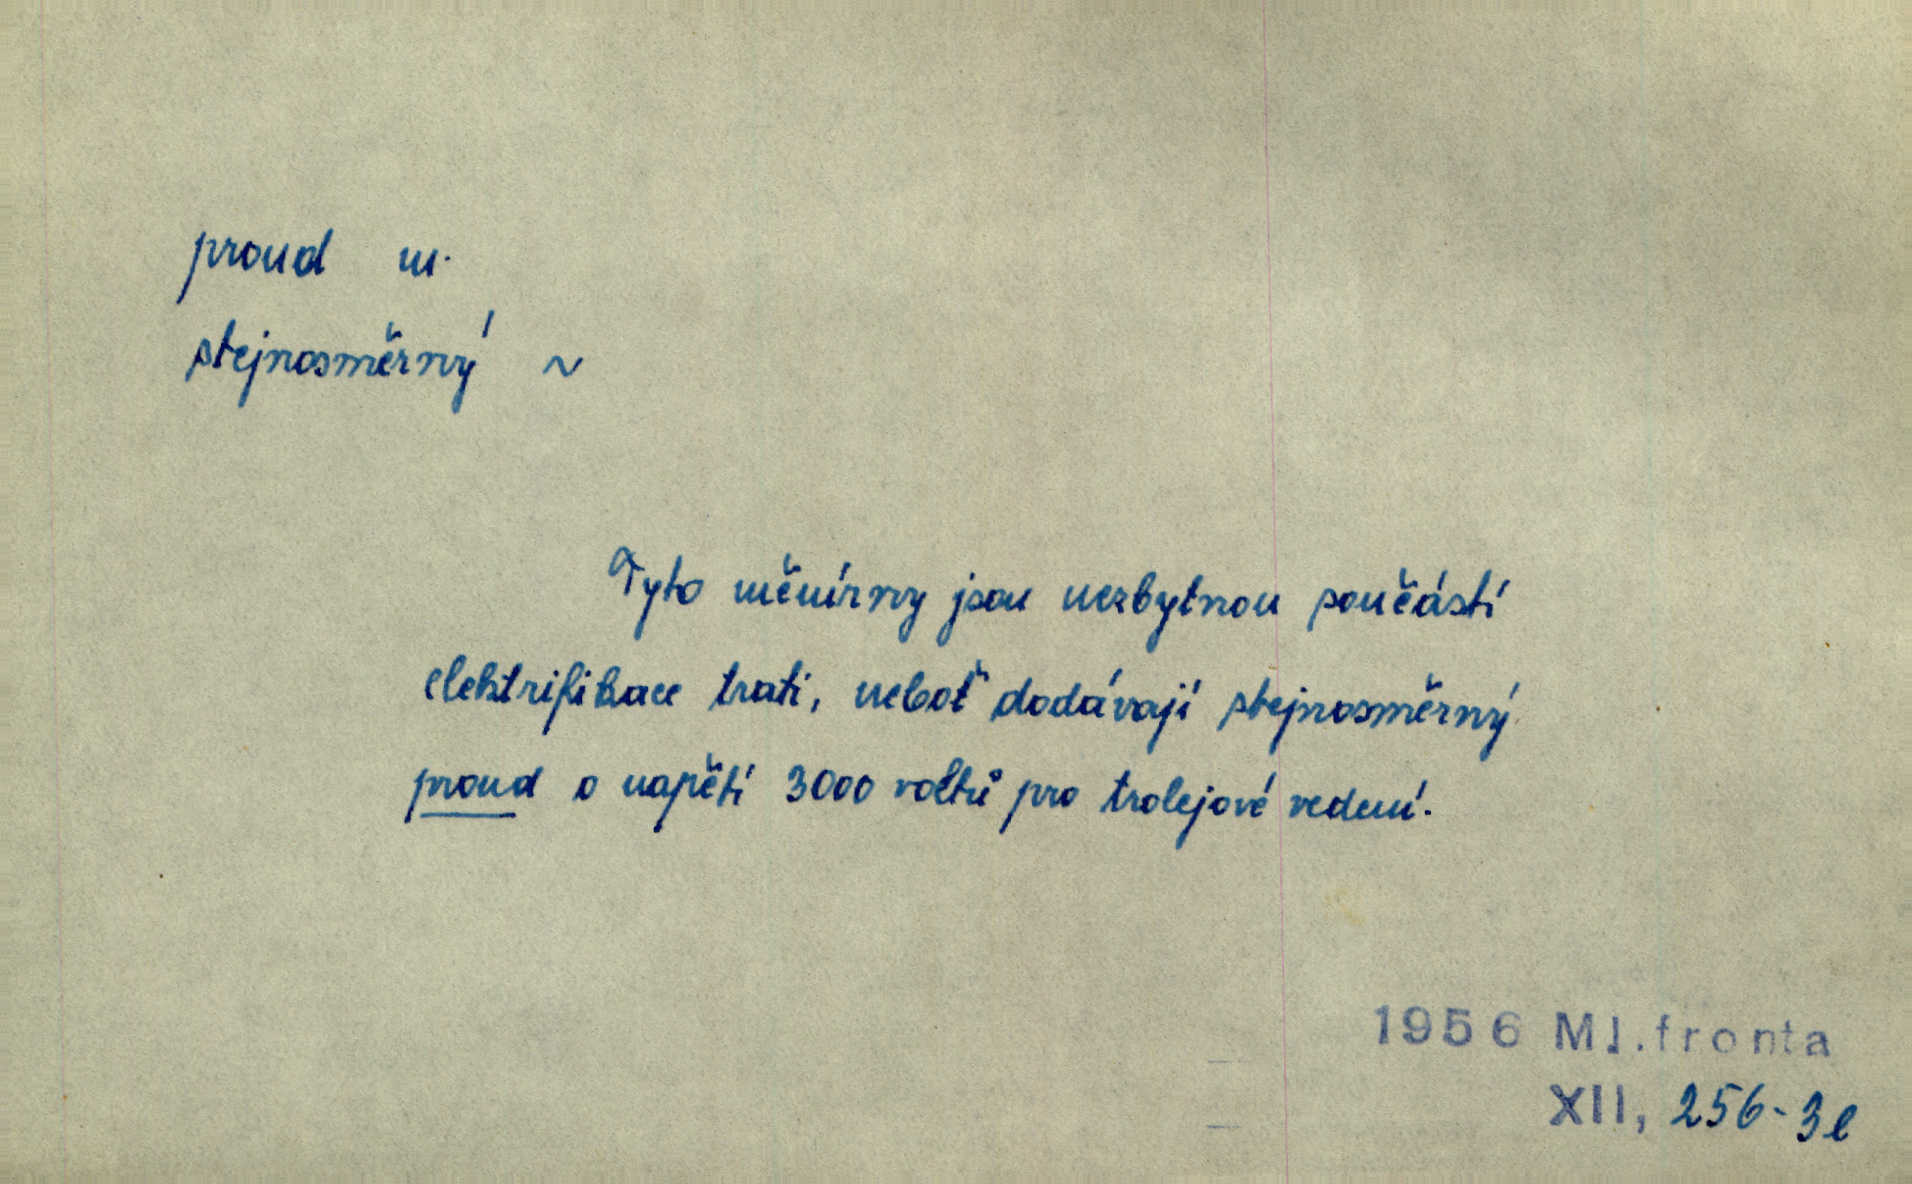 proud m.
stejnosměrný ~
Tyto měnírny jsou nezbytnou součástí
elektrifikace trati, neboť dodávají stejnosměrný
proud o napětí 3000 voltů pro trolejové vedení.
1956 Ml.fronta
XII, 256-3l